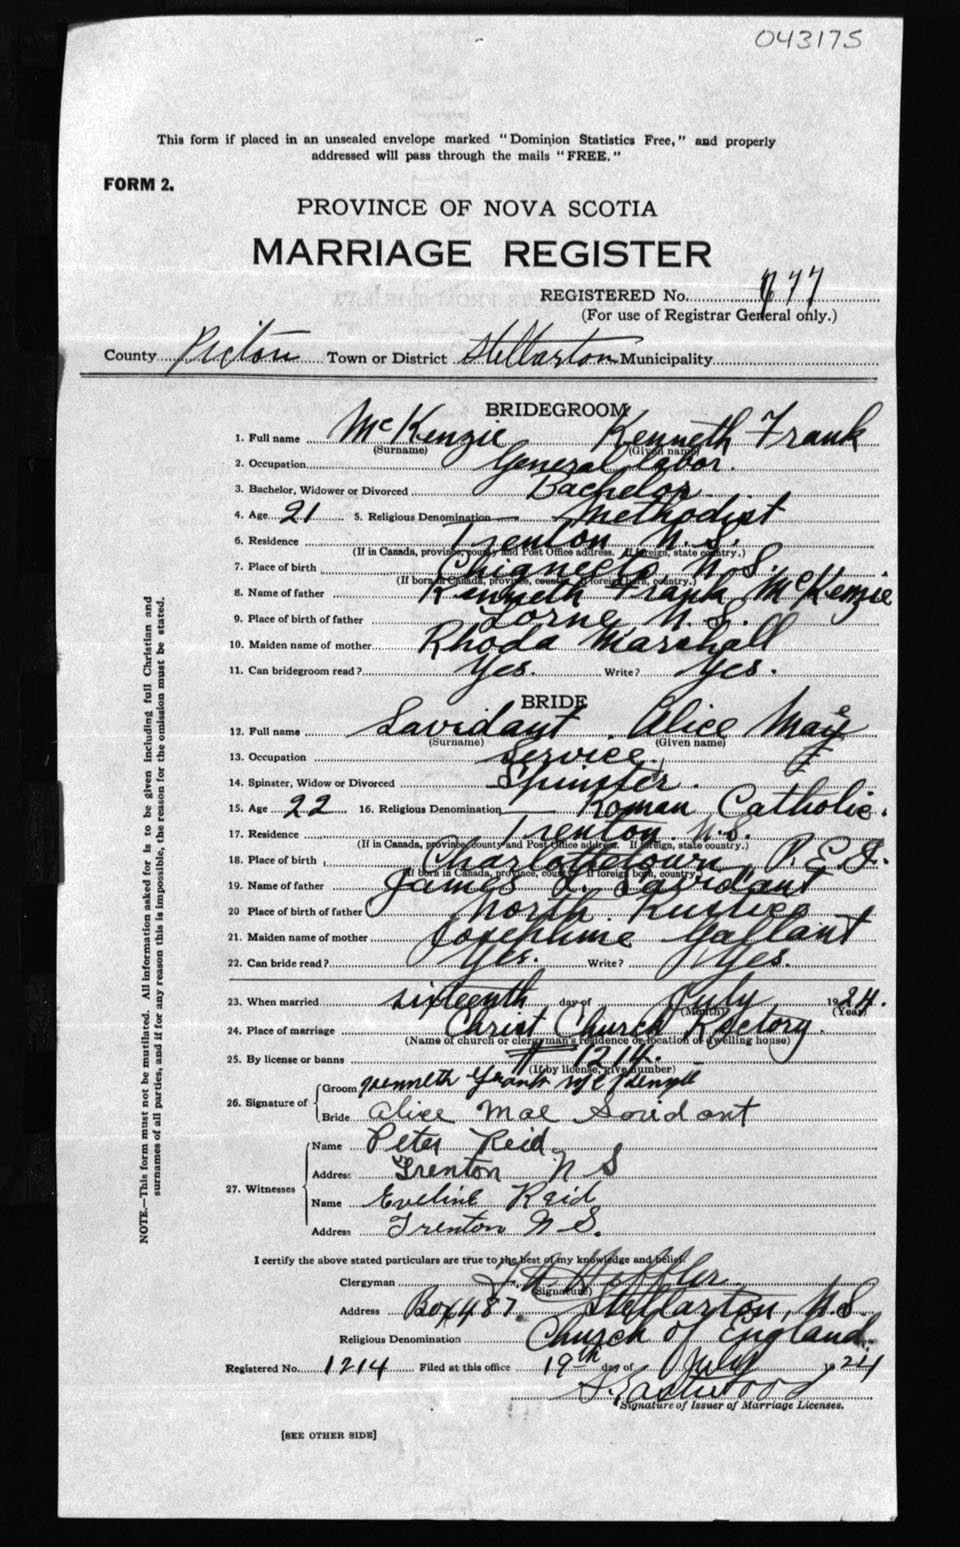 043175
This form if placed in an unsealed envelope marked "Dominion Statistics Free," and properly
addressed will pass through the mails "FREE."
FORM 2.
PROVINCE OF NOVA SCOTIA
MARRIAGE REGISTER
REGISTERED No. 677
(For use of Registrar General only.)
County Pictou Town or District Stellarton Municipality
BRIDEGROOM
1. Full name McKenzie Kenneth Frank
(Surname) (Given name)
2. Occupation General labor.
3. Bachelor, Widower or Divorced Bachelor
4. Age 21 5. Religious Denomination Methodist
6. Residence Trenton N.S.
(If in Canada, province, county and Post Office address. If foreign, state country.)
7. Place of birth Chignecto N.S.
(If born in Canada, province, county. If foreign born, country.)
8. Name of father Kenneth Frank McKenzie
9. Place of birth of father Lorne N.S.
10. Maiden name of mother Rhoda Marshall
11. Can bridegroom read? Yes. Write? Yes.
BRIDE
12. Full name Savidant Alice Mae
(Surname) (Given name)
13. Occupation Service.
14. Spinster, Widow or Divorced Spinster.
15. Age 22 16. Religious Denomination Roman Catholic.
17. Residence Trenton N.S.
(If in Canada, province, county and Post Office address. If foreign, state country.)
18. Place of birth Charlottetown, P.E.I.
(If born in Canada, province, county. If foreign born, country.)
19. Name of father James Savidant
20 Place of birth of father North Rustico
21. Maiden name of mother Josephine Gallant
22. Can bride read? Yes. Write? Yes.
23. When married sixteenth day of July 1924.
(Month) (Year)
24. Place of marriage Christ Church Rectory.
(Name of church or clergyman's residence or location of dwelling house)
25. By license or banns # 1214.
(If by license, give number)
26. Signature of Groom Kenneth Frank McKenzie
Bride Alice Mae Savidant
27. Witnesses Name Peter Reid
Address Trenton N S
Name Eveline Reid
Address Trenton N S.
I certify the above stated particulars are true to the best of my knowledge and belief.
Clergyman
(Signature)
Address Box 487. Stellarton, N.S.
Religious Denomination Church of England.
Registered No. 1214 Filed at this office 19th day of July 1924
Eastwood
Signature of Issuer of Marriage Licenses.
[SEE OTHER SIDE]
NOTE.—This form must not be mutilated. All information asked for is to be given including full Christian and
surnames of all parties, and if for any reason this is impossible, the reason for the omission must be stated.